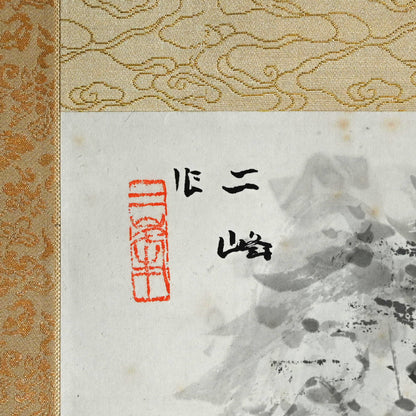 二峰
作